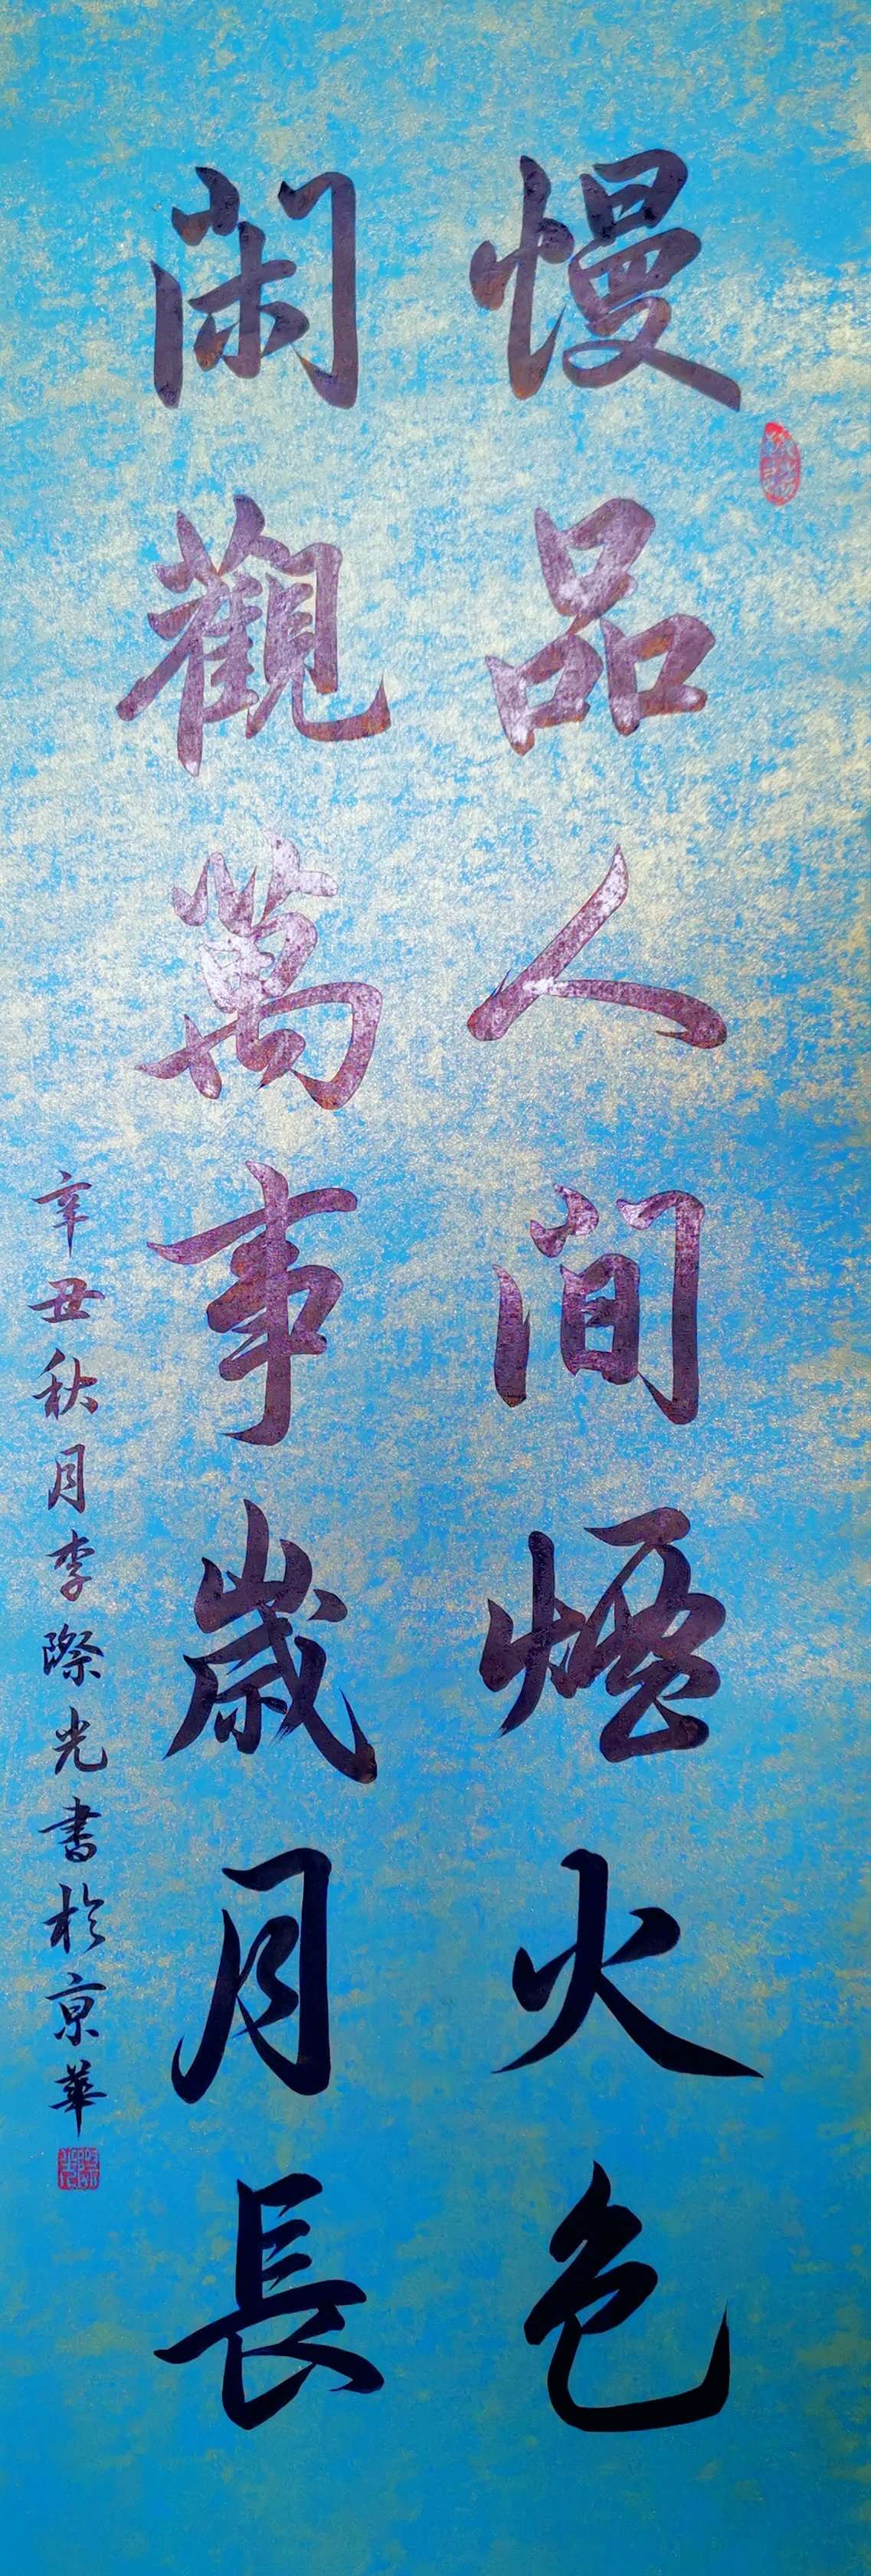 慢品人间煙火色
闲觀萬事歲月長
辛丑秋月李際光書於京華